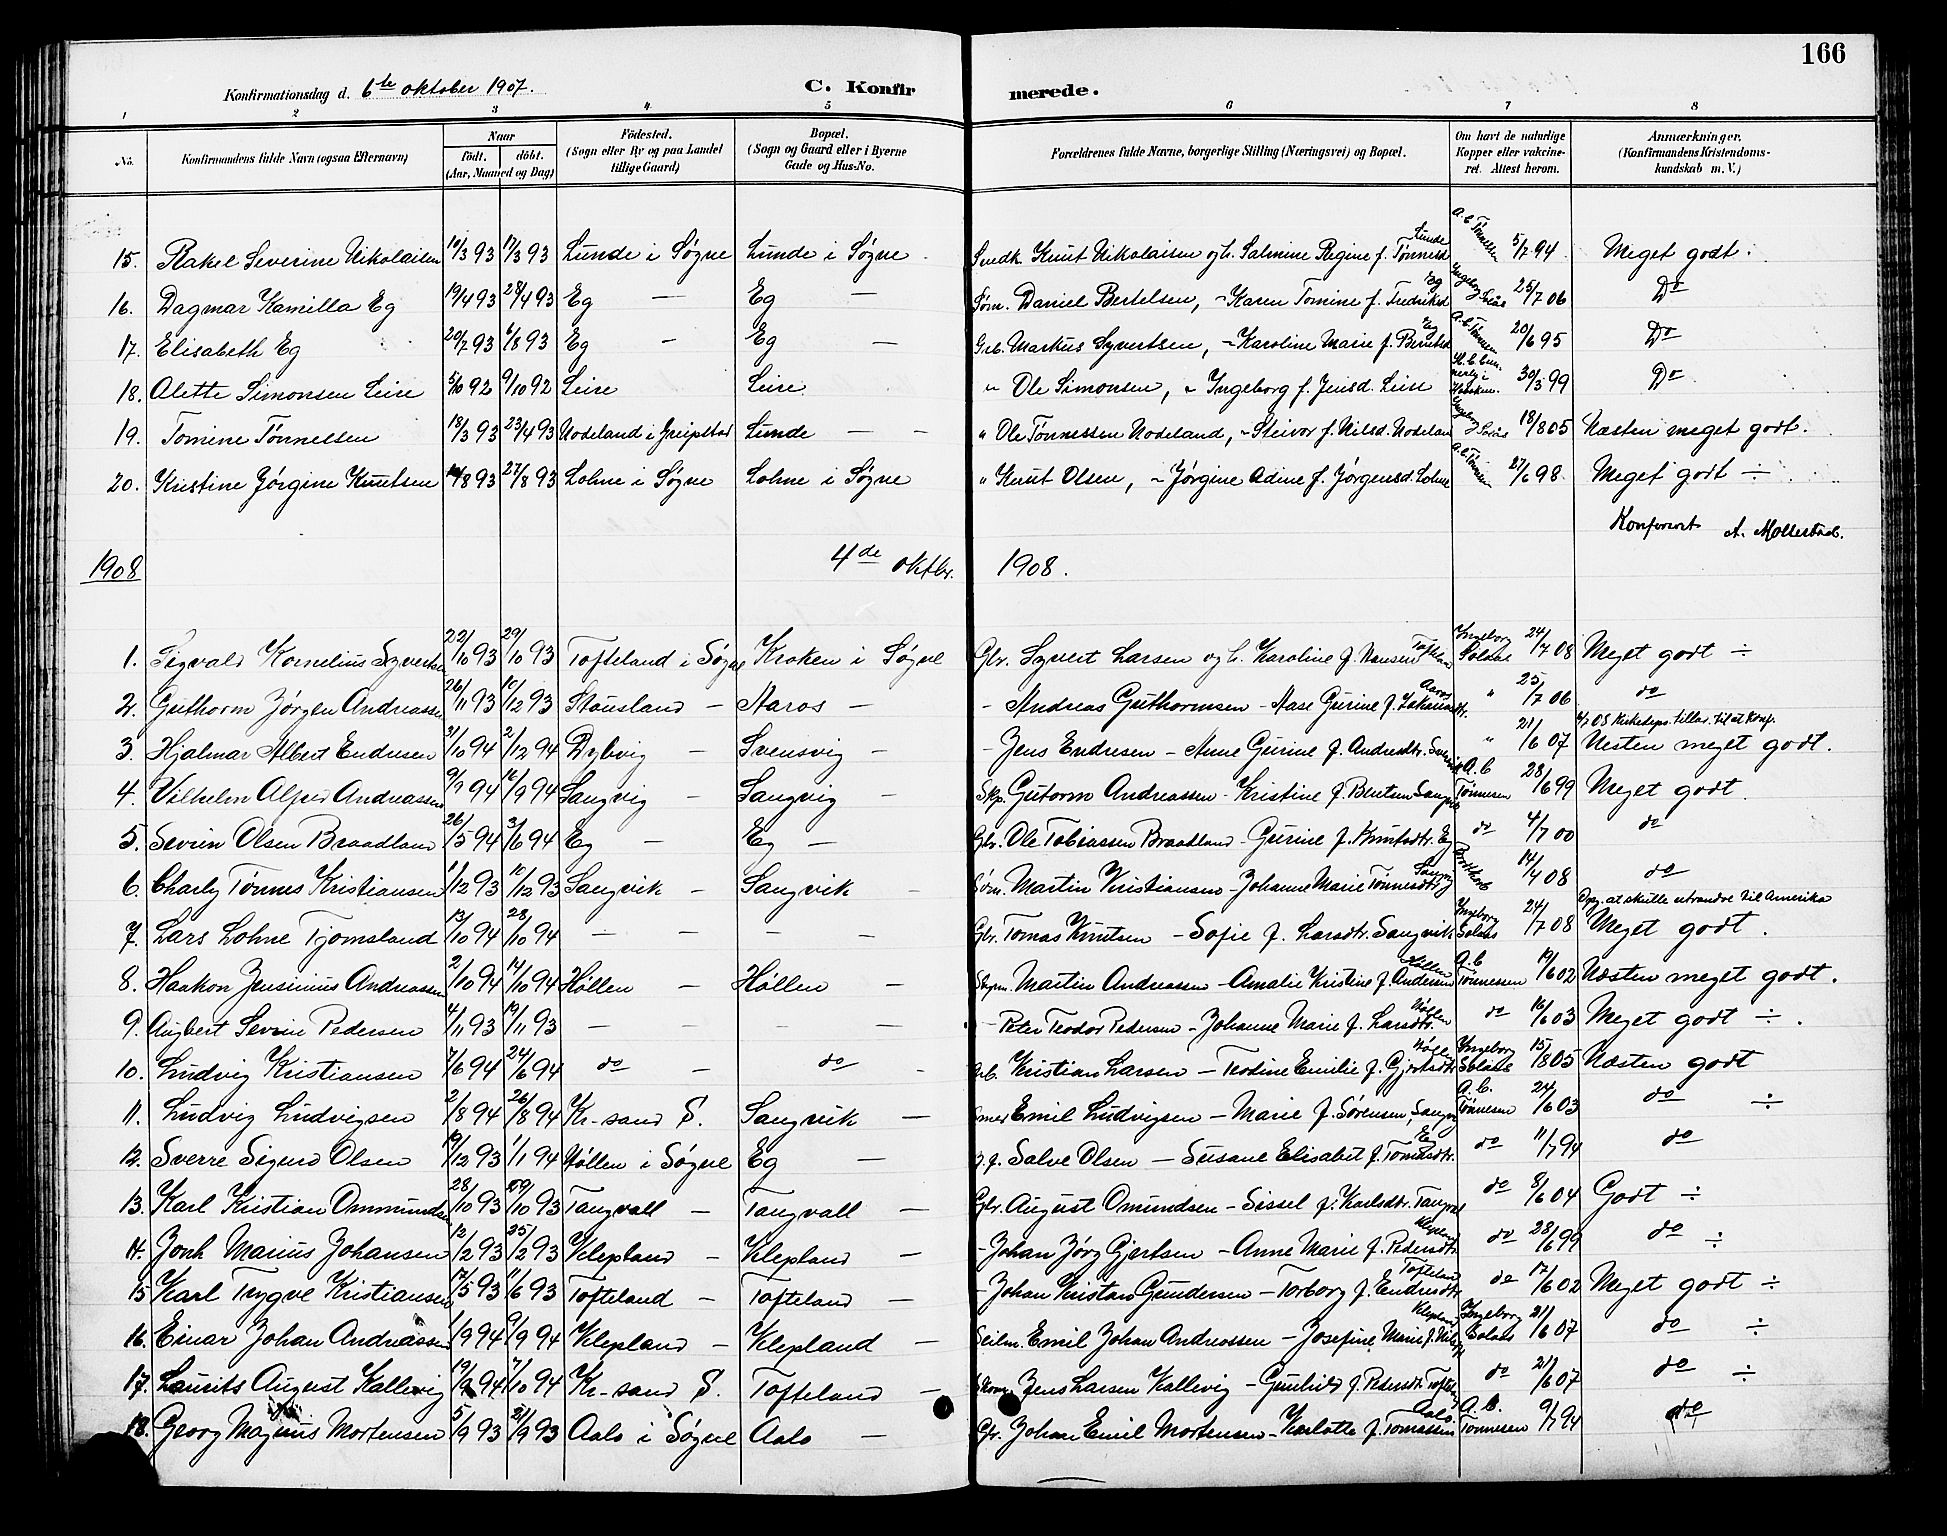 166
Konfirmationsdag d. 6te oktober 1907. C. Konfirmerede.
1 2 3 4 5 6 7 8
No. Konfirmandens fulde Navn (ogsaa Efternavn) Naar født. døbt. (Aar, Maaned og Dag) Fødested. (Sogn eller By og paa Landet tillige Gaard) Bopæl. (Sogn og Gaard eller i Byerne Gade og Hus-No. Forældrenes fulde Navne, borgerlige Stilling (Næringsvei) og Bopæl. Om havt de naturlige Kopper eller vakcineret. Attest herom. Anmærkninger. (Konfirmandens Kristendomskundskab m. V.)
15. Rakel Severine Nikolaisen 10/3 93 17/3 93 Lunde i Søgne Lunde i Søgne Snedk. Knut Nikolaisen og h. Salmine Regine f. Tønnesd. Lunde A. C. Tønnessen 5/7 94 Meget godt.
16. Dagmar Kamilla Eg 19/4 93 28/4 93 Eg — Eg — Søm. Daniel Bertelsen, - Karen Tomine f. Fredriksd. Eg Ingeborg Solaas 25/7 06 Do
17. Elisabeth Eg 20/7 93 6/8 93 Eg — Eg — Grb. Markus Syvertsen, - Karoline Marie f. Berntsd. Eg A. C. Tønnessen 20/6 95 Do
18. Alette Simonsen Leire 5/10 92 9/10 92 Leire Leire " Ole Simonsen, - Ingeborg f. Jensd. Leire 30/3 99 Do
19. Tomine Tønnessen 18/3 93 23/4 93 Nodeland i Greipstad Lunde — — " Ole Tønnessen Nodeland, - Steivor f. Nilsd. Nodeland Ingeborg Solaas 18/8 05 Næsten meget godt.
20. Kristine Jørgine Knutsen /8 93 27/8 93 Lohne i Søgne Lohne i Søgne " Knut Olsen, - Jørgine Adine f. Jørgensd. Lohne A. C. Tønnessen 27/6 98 Meget godt ÷
Konfereret A. Mollestad.
1908 4de oktbr. 1908.
1. Sigvald Kornelius Syvertsen 22/10 93 29/10 93 Tofteland i Søgne Kroken i Søgne Gbr. Syvert Larsen og h. Karoline f. Hansen Tofteland Ingeborg Solaas 24/7 08 Meget godt ÷
2. Guthorm Jørgen Andreassen 26/11 93 10/12 93 Stausland — Aaros — - Andreas Guthormsen - Aase Gurine f. Johannesdtr. Aaros " 25/7 06 do
3. Hjalmar Albert Endresen 31/10 94 2/12 94 Dybvig — Svensvig — - Jens Endresen - Anne Gurine f. Andreasdtr. Svensvik " 21/6 07 Kirkedep. tillad. til at konf. Nesten meget godt.
4. Vilhelm Alfred Andreassen 9/7 94 16/9 94 Langvig — Langvig — Skp. Gutorm Andreassen - Kristine f. Bentsen Langvik A. C. Tønnesen 28/6 99 Meget godt.
5. Sevrin Olsen Braadland 26/5 94 3/6 94 Eg — Eg — Gbr. Ole Tobiassen Braadland - Gurine f. Knutsdtr. Eg do 4/7 00 do
6. Charly Tønnes Kristiansen 1/12 93 12/12 93 Langvik — Langvik — Søm. Martin Kristiansen - Johanne Marie Tønnesdtr. Langvig 14/4 08 do
7. Lars Lohne Tjomsland 13/10 94 28/10 94 — — — — Gbr. Tomas Knutsen - Sofie f. Larsdtr. Langvik Ingeborg Solaas 24/7 08 Opg. at skulle udvandre til Amerika Meget godt.
8. Haakon Jensinius Andreassen 2/10 94 14/10 94 Høllen — Høllen — Styrm. Martin Andreassen - Amalie Kristine f. Andersen Høllen A. C. Tønnessen 19/6 02 Næsten meget godt.
9. Augbert Sevrin Pedersen 4/11 93 19/11 93 — — — - Peter Teodor Pedersen - Johanne Marie f. Larsdtr. Høllen do 16/6 03 Meget godt ÷.
10. Ludvig Kristiansen 7/6 94 24/6 94 do — do - Arb. Kristian Larsen - Teodine Emilie f. Gjertsdtr. Høllen Ingeborg Solaas 15/8 05 Næsten godt
11. Ludvig Ludvigsen 2/8 94 26/8 94 Kr-sand S. Langvik — Emil Ludvigsen - Marie f. Sørensen, Langvig A. C. Tønnesen 24/6 03 do ÷
12. Sverre Sigurd Olsen 19/12 93 1/1 94 Høllen i Søgne Eg — Salve Olsen — Susane Elisabet f. Tomasdtr. Eg do 11/7 94 do
13. Karl Kristian Ommundsen 28/10 93 29/10 93 Tangvall — Tangvall — Gbr. August Omundsen - Sissel f. Karlsdtr. Tangval do 8/6 04 Godt ÷
14. Jonh Marius Johansen 12/2 93 25/2 93 Klepland — Klepland — - Johan Jørg Gjertsen - Anne Marie f. Pedersdtr. Klepland do 28/6 99 do ÷
15 Karl Trygve Kristiansen 17/5 93 11/6 93 Tofteland — Tofteland — - Johan Kristan Gundersen - Torborg f. Endresdtr. Tofteland do 17/6 02 Meget godt ÷
16. Einar Johan Andreassen 1/9 94 9/9 94 Klepland — Klepland — Seilm. Emil Johan Andreassen - Josefine Marie f. Klepland Ingeborg Solaas 21/6 07 do ÷
17. Laurits August Kallevig 19/9 94 7/10 94 Kr-sand S. Tofteland — Jens Larsen Kallevig - Gunhild f. Pedersdtr. Tofteland do 21/6 07 do ÷
18. Georg Magnus Mortensen 5/9 93 21/9 93 Aalo i Søgne Aalo — Gbr. Johan Emil Mortensen - Karlotte f. Tomassen Aalo. A. C. Tønnesen 9/7 94 do